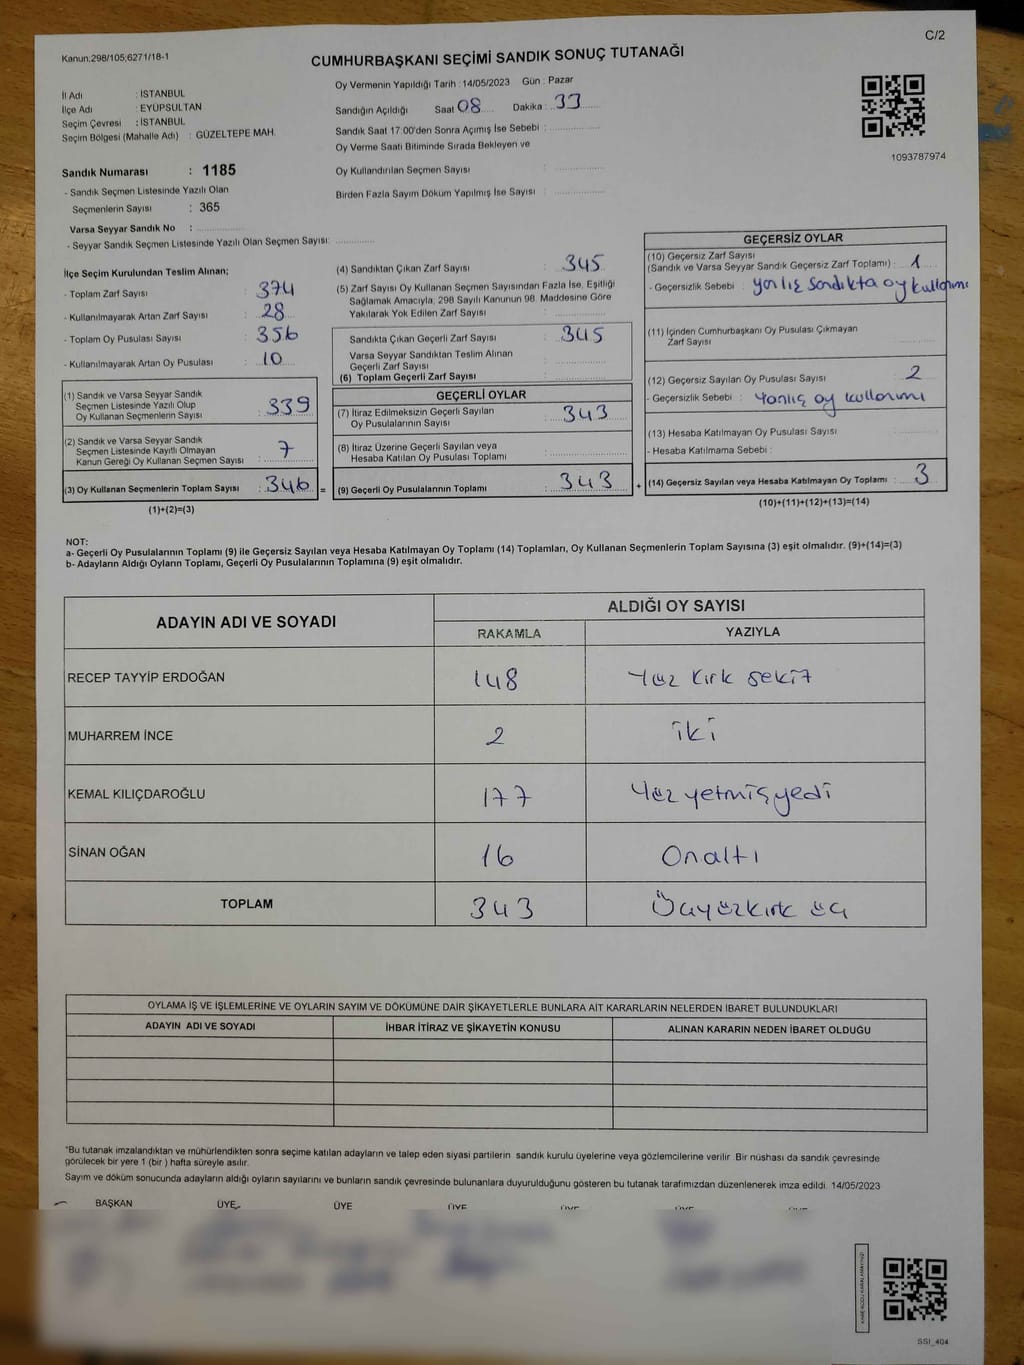 C/2
Kanun:298/105;6271/18-1
CUMHURBAŞKANI SEÇİMİ SANDIK SONUÇ TUTANAĞI
Oy Vermenin Yapıldığı Tarih : 14/05/2023 Gün : Pazar
İl Adı : İSTANBUL
İlçe Adı : EYÜPSULTAN
Seçim Çevresi : İSTANBUL
Seçim Bölgesi (Mahalle Adı) : GÜZELTEPE MAH.
Sandığın Açıldığı Saat 08 Dakika : 33
Sandık Saat 17:00'den Sonra Açımış İse Sebebi :
Oy Verme Saati Bitiminde Sırada Bekleyen ve
Oy Kullandırılan Seçmen Sayısı :
Birden Fazla Sayım Döküm Yapılmış İse Sayısı :
1093787974
Sandık Numarası : 1185
- Sandık Seçmen Listesinde Yazılı Olan
Seçmenlerin Sayısı : 365
Varsa Seyyar Sandık No :
- Seyyar Sandık Seçmen Listesinde Yazılı Olan Seçmen Sayısı:
İlçe Seçim Kurulundan Teslim Alınan;
- Toplam Zarf Sayısı : 374
- Kullanılmayarak Artan Zarf Sayısı : 28
- Toplam Oy Pusulası Sayısı : 356
- Kullanılmayarak Artan Oy Pusulası : 10
(1) Sandık ve Varsa Seyyar Sandık
Seçmen Listesinde Yazılı Olup
Oy Kullanan Seçmenlerin Sayısı : 339
(2) Sandık ve Varsa Seyyar Sandık
Seçmen Listesinde Kayıtlı Olmayan
Kanun Gereği Oy Kullanan Seçmen Sayısı : 7
(3) Oy Kullanan Seçmenlerin Toplam Sayısı : 346 =
(1)+(2)=(3)
(4) Sandıktan Çıkan Zarf Sayısı : 345
(5) Zarf Sayısı Oy Kullanan Seçmen Sayısından Fazla İse, Eşitliği
Sağlamak Amacıyla, 298 Sayılı Kanunun 98. Maddesine Göre
Yakılarak Yok Edilen Zarf Sayısı :
Sandıkta Çıkan Geçerli Zarf Sayısı : 345
Varsa Seyyar Sandıktan Teslim Alınan
Geçerli Zarf Sayısı :
(6) Toplam Geçerli Zarf Sayısı :
GEÇERLİ OYLAR
(7) İtiraz Edilmeksizin Geçerli Sayılan
Oy Pusulalarının Sayısı : 343
(8) İtiraz Üzerine Geçerli Sayılan veya
Hesaba Katılan Oy Pusulası Toplamı :
(9) Geçerli Oy Pusulalarının Toplamı : 343 +
GEÇERSİZ OYLAR
(10) Geçersiz Zarf Sayısı
(Sandık ve Varsa Seyyar Sandık Geçersiz Zarf Toplamı) : 1
- Geçersizlik Sebebi : yanlış sandıkta oy kullanımı
(11) İçinden Cumhurbaşkanı Oy Pusulası Çıkmayan
Zarf Sayısı
(12) Geçersiz Sayılan Oy Pusulası Sayısı : 2
- Geçersizlik Sebebi : Yanlış oy kullanımı
(13) Hesaba Katılmayan Oy Pusulası Sayısı
- Hesaba Katılmama Sebebi :
(14) Geçersiz Sayılan veya Hesaba Katılmayan Oy Toplamı : 3
(10)+(11)+(12)+(13)=(14)
NOT:
a- Geçerli Oy Pusulalarının Toplamı (9) ile Geçersiz Sayılan veya Hesaba Katılmayan Oy Toplamı (14) Toplamları, Oy Kullanan Seçmenlerin Toplam Sayısına (3) eşit olmalıdır. (9)+(14)=(3)
b- Adayların Aldığı Oyların Toplamı, Geçerli Oy Pusulalarının Toplamına (9) eşit olmalıdır.
ADAYIN ADI VE SOYADI ALDIĞI OY SAYISI
RAKAMLA YAZIYLA
RECEP TAYYİP ERDOĞAN 148 Yüz kırk sekiz
MUHARREM İNCE 2 iki
KEMAL KILIÇDAROĞLU 177 Yüz yetmiş yedi
SİNAN OĞAN 16 Onaltı
TOPLAM 343 Üçyüzkırk üç
OYLAMA İŞ VE İŞLEMLERİNE VE OYLARIN SAYIM VE DÖKÜMÜNE DAİR ŞİKAYETLERLE BUNLARA AİT KARARLARIN NELERDEN İBARET BULUNDUKLARI
ADAYIN ADI VE SOYADI İHBAR İTİRAZ VE ŞİKAYETİN KONUSU ALINAN KARARIN NEDEN İBARET OLDUĞU
*Bu tutanak imzalandıktan ve mühürlendikten sonra seçime katılan adayların ve talep eden siyasi partilerin sandık kurulu üyelerine veya gözlemcilerine verilir. Bir nüshası da sandık çevresinde
görülecek bir yere 1 (bir ) hafta süreyle asılır.
Sayım ve döküm sonucunda adayların aldığı oyların sayılarını ve bunların sandık çevresinde bulunanlara duyurulduğunu gösteren bu tutanak tarafımızdan düzenlenerek imza edildi. 14/05/2023
BAŞKAN ÜYE ÜYE ÜYE ÜYE ÜYE ÜYE
SSİ_404